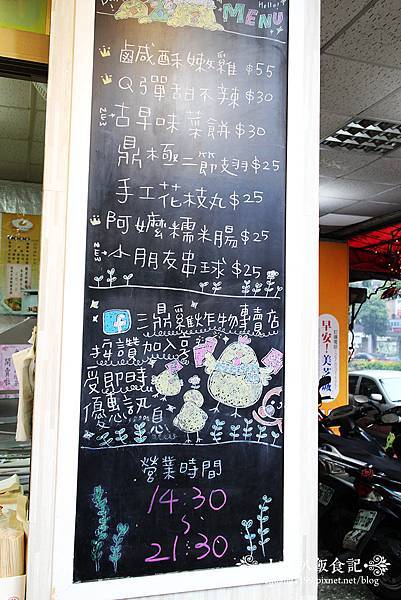 Hello!
MENU
鹹酥嫩雞 $55
Q彈甜不辣 $30
NEW 古早味菜餅 $30
鼎極二節翅 $25
手工花枝丸 $25
阿嬤糯米腸 $25
NEW 小朋友串球 $25
f 二鼎雞炸物專賣店
按讚加入享
受即時
優惠訊息
營業時間
14:30
~
21:30
早安!美芝城
飯食記
pixnet.net/blog